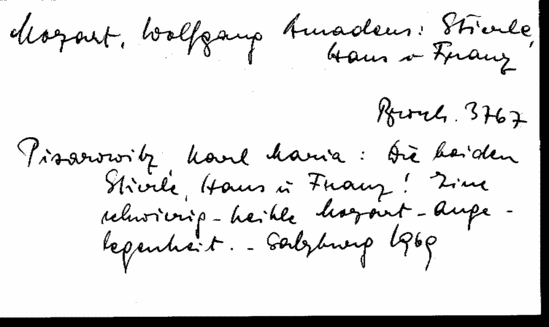 Mozart, Wolfgang Amadeus: Stierle,
Hans u Franz
Brosch. 3767
Pisarowitz, Karl Maria: Die beiden
Stierle, Hans u Franz! Eine
schwierig-heikle Mozart-ange-
legenheit. - Salzburg 1969